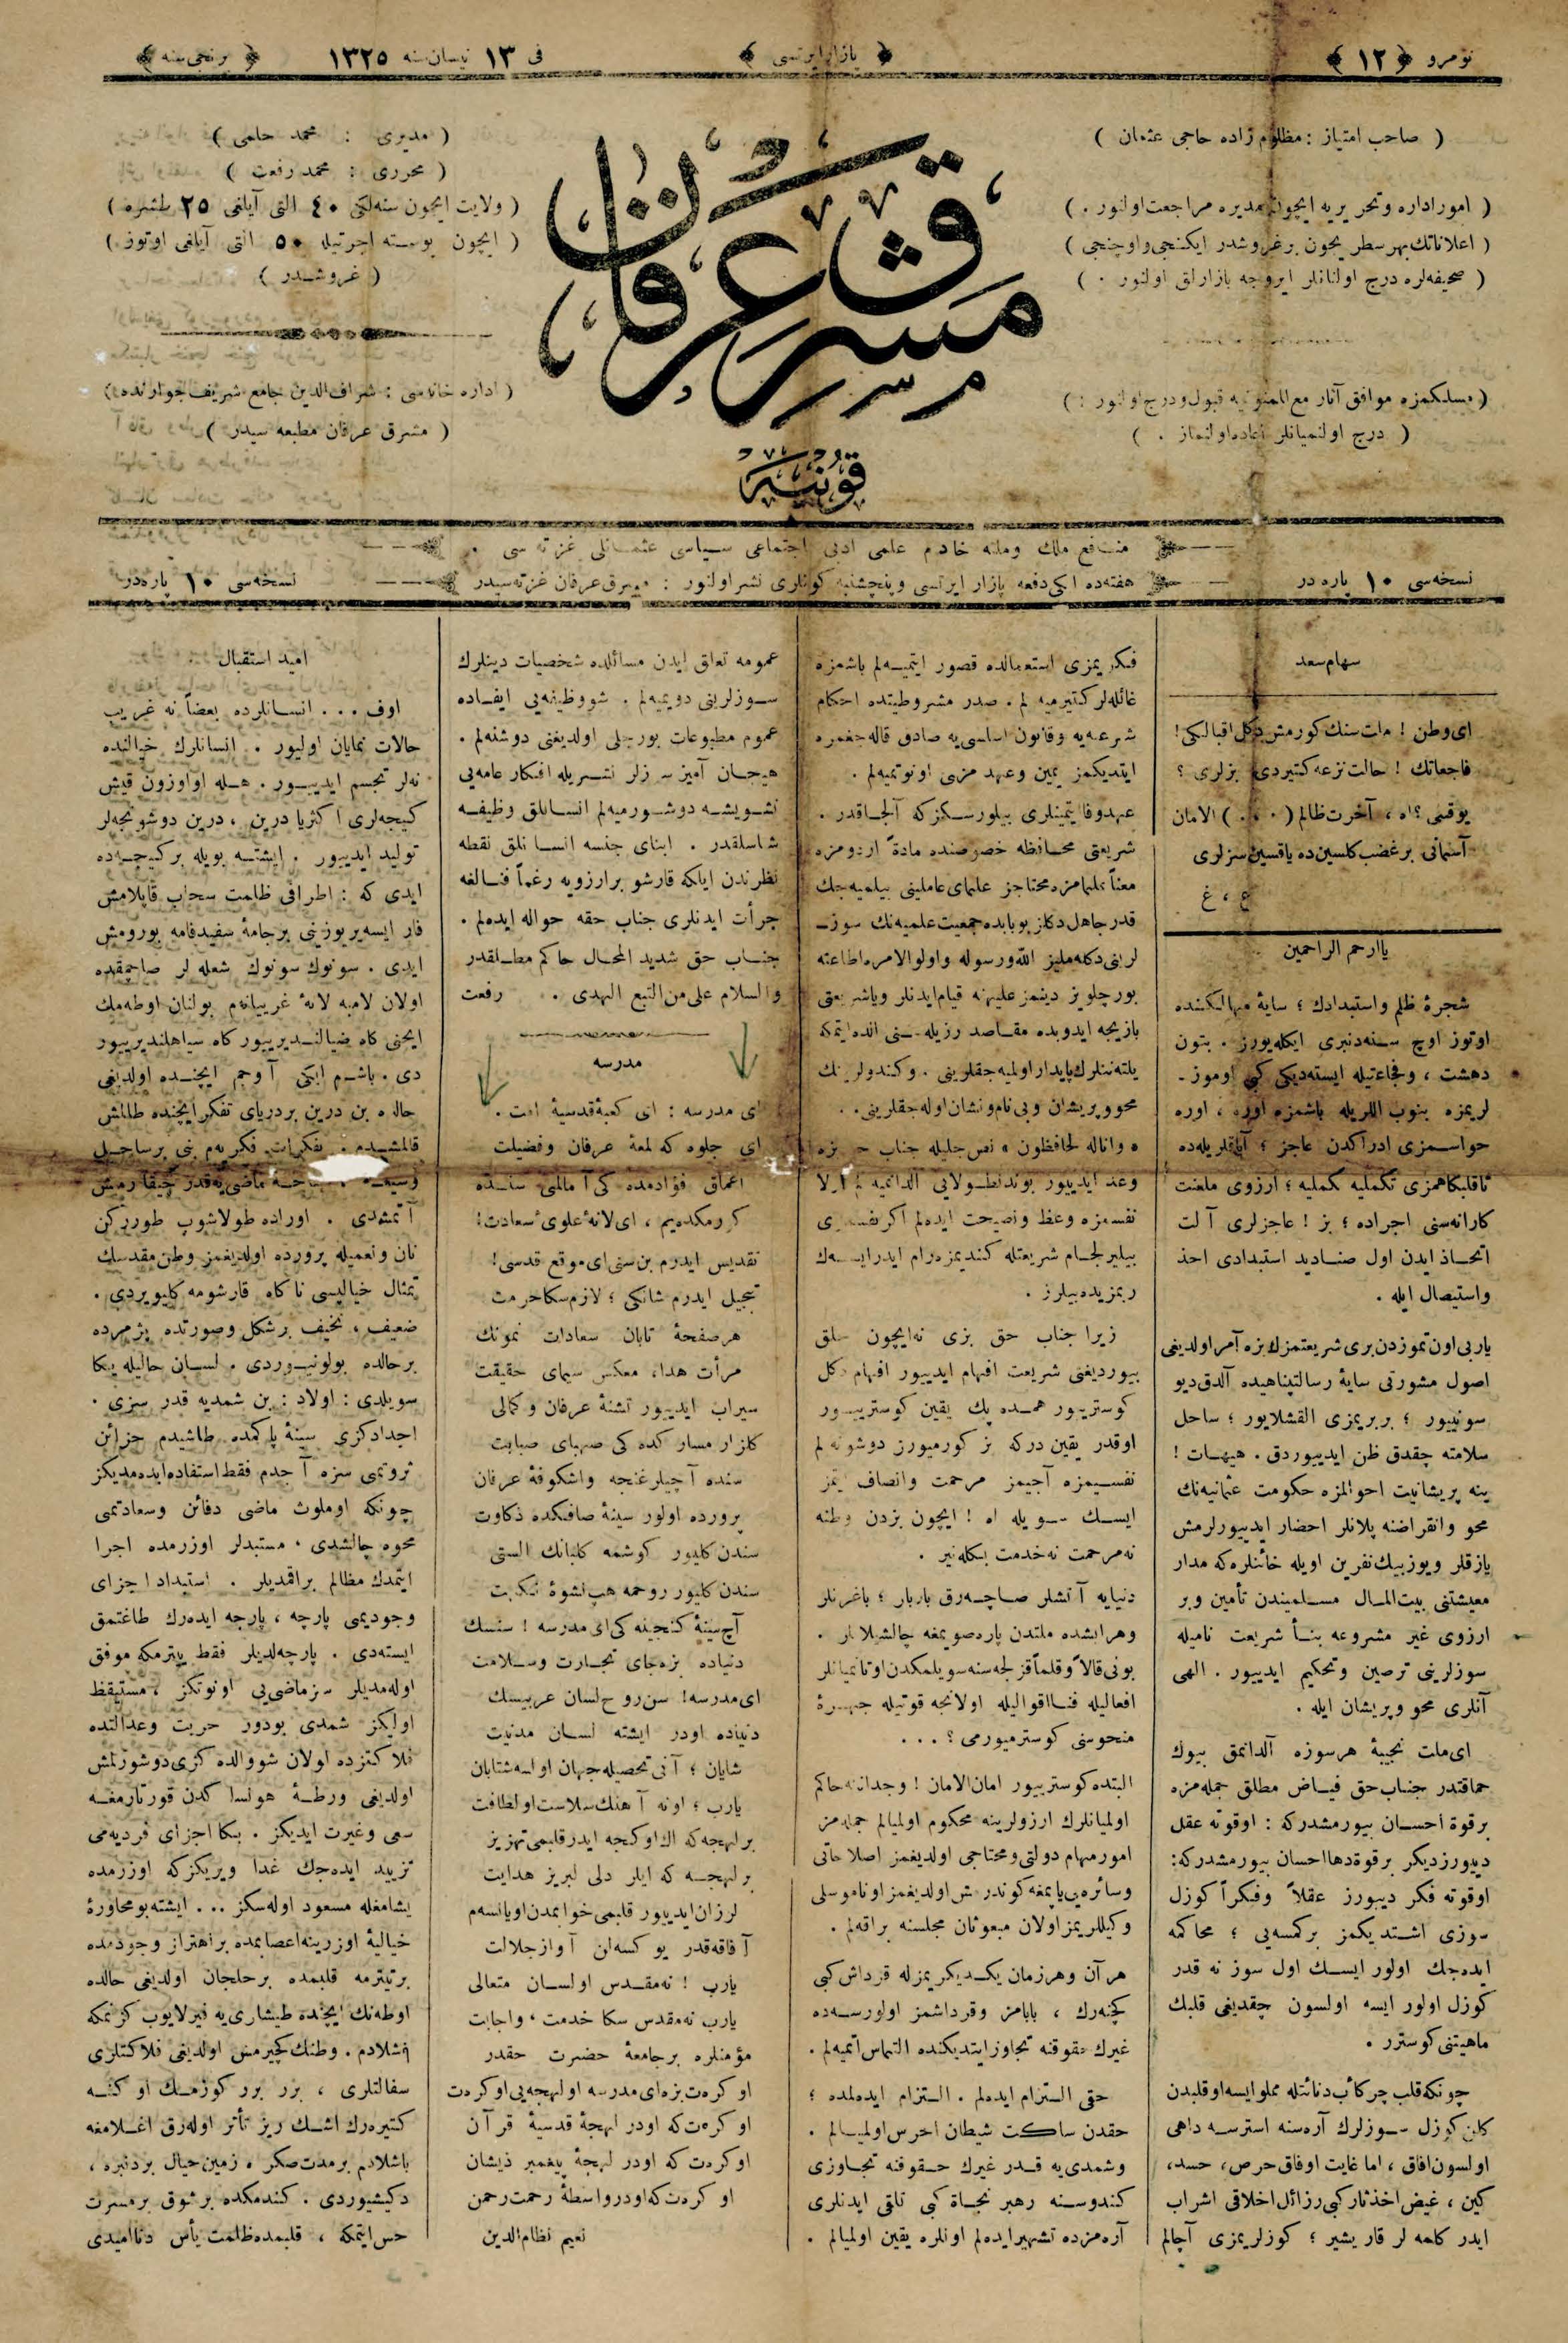 نومرو ﴿ ١٢ ﴾
﴿ بازار ایرتسی ﴾
فی ١٣ نیسان سنه ١٣٢٥
﴿ برنجی سنه ﴾
( صاحب امتیاز : مظلوم زاده حاجی عثمان )
( امور اداره و تحریریه ایچون مدیره مراجعت اولنور . )
( اعلاناتك بهر سطریچون برغروشدر ایكنجی واوچنجی )
( صحیفه‌لره درج اولنانلر ایروجه بازارلق اولنور . )
( مسلكمزه موافق آثار مع الممنونیه قبول ودرج اولنور : )
( درج اولنمیانلر اعاده اولنماز . )
مشرق عرفان
قونیه
( مدیری : محمد حلمی )
( محرری : محمد رفعت )
( ولایت ایچون سنه‌لكی ٤٠ التی آیلغی ٢٥ طشره )
( ایچون بوسته اجرتیله ٥٠ التی آیلغی اوتوز )
( غروشدر )
( اداره خانه‌سی : شراف الدین جامع شریف جوارنده )
( مشرق عرفان مطبعه سیدر )
منافع ملك وملته خادم علمی ادبی اجتماعی سیاسی عثمانلی غزته سی .
نسخه‌سی ١٠ پاره در
هفته‌ده ایكی دفعه پازار ایرتسی وپنچشنبه كونلری نشر اولنور : مشرق عرفان غزته سیدر
نسخه‌سی ١٠ پاره در
سهام سعد
ای وطن ! مات سنك كورمش دكل اقبالكی !
فاجعاتك ! حالت نزعه كتیردی بزلری ؟
یوقمی ؟ اه ، آخرت ظالم ( . . . ) الامان
آسمانی بر غضب كلسین ده یاقسین سزلری
ع ، غ
یا ارحم الراحمین
شجرۀ ظلم واستبدادك ؛ سایۀ مهالكنده
اوتوز اوچ سنه‌دنبری ایكله‌یورز . بتون
دهشت ، وفجاعتیله ایسته‌دیكی كبی اوموز -
لریمزه بنوب اللریله باشمزه اوره ، اوره
حواسمزی ادراكدن عاجز ؛
تاقلبكاهمزی تكملیه كملیه ؛ ارزوی ملعنت
كارانه‌سنی اجراده ؛ بز ! عاجزلری آلت
اتخاذ ایدن اول صنادید استبدادی اخذ
واستیصال ایله .
یاربی اون تموزدن بری شریعتمزك بزه آمر اولدیغی
اصول مشورتی سایۀ رسالتپناهیده آلدق دیو
سونییور ؛ بربریمزی القشلایور ؛ ساحل
سلامته چقدق ظن ایدییوردق . هیهات !
ینه پریشانیت احوالمزه حكومت عثمانیه‌نك
محو وانقراضنه پلانلر احضار ایدییورلرمش
یازقلر ویوزبیك نفرین اویله خائنلره كه مدار
معیشتنی بیت المال مسلمیندن تأمین وبر
ارزوی غیر مشروعه بنأ شریعت نامیله
سوزلرینی ترصین وتحكیم ایدییور . الهی
آنلری محو وپریشان ایله .
ای ملت نجیبۀ هر سوزه آلدانمق بیوك
حماقتدر جناب حق فیاض مطلق جمله‌مزه
برقوۀ احسان بیورمشدركه : اوقوته عقل
دییورز دیكر برقوۀ دها احسان بیورمشدركه :
اوقوته فكر دییورز عقلاً وفكراً كوزل
سوزی اشتدیكمز بركمسه‌یی ؛ محاكمه
ایده‌جك اولور ایسك اول سوز نه قدر
كوزل اولور ایسه اولسون چقدیغی قلبك
ماهیتنی كوسترر .
چونكه قلب چركاب دنائتله مملو ایسه اوقلبدن
كلن كوزل سوزلرك آره‌سنه استرسه داهی
اولسون افاق ، اما غایت اوفاق حرص ، حسد ،
كین ، غیض اخذثار كبی رزائل اخلاقی اشراب
ایدر كلمه لر قاریشیر ؛ كوزلریمزی آچالم
فكریمزی استعمالده قصور ایتمیه‌لم باشمزه
غائله‌لر كتیرمیه لم . صدر مشروطیتده احكام
شرعیه‌یه وقانون اساسی‌یه صادق قاله‌جغمزه
ایتدیكمز یمین وعهد مزی اونوتمیه‌لم .
عهد وفا ایتمینلری بیلورسكزكه آلچاقدر .
شریعتی محافظه خصوصنده مادةً اردومزه
معناً علمامزه محتاجز علمای عاملینی بیلمیه‌جك
قدر جاهل دكلز بوبابده جمعیت علمیه‌نك سوز -
لرینی دكله‌ملیز الله ورسوله واولوالامره اطاعته
بورجلویز دینمز علیهنه قیام ایدنلر ویا شریعتی
بازیچه ایدوبده مقاصد رزیله سنی
یلتننلرك پایدار اولمیه‌جقلرینی . وكندولرینك
محو وپریشان وبی نام ونشان اوله‌جقلرینی . .
« وانا له لحافظون » نص جلیله جناب حق بزه
وعد ایدییور بوندنطولایی آلدانمیه لم اولا
نفسمزه وعظ ونصیحت ایده‌لم اكر نفسمزی
بیلیر لجام شریعتله كندیمزه رام ایدرایسه‌ك
ربمزیده بیلرز .
زیرا جناب حق بزی نه‌ایچون خلق
بیوردیغنی شریعت افهام ایدییور افهام دكل
كوستریور همده پك یقین كوسترییور
اوقدر یقین دركه بز كورمیورز دوشونه لم
نفسیمزه آجیمز مرحمت وانصاف ایتمز
ایسك سویله اه ! ایچون بزدن وطنه
نه مرحمت نه خدمت بكله‌نیر .
دنیایه آتشلر صاچه‌رق باربار ؛ باغرنلر
وهر ایشده ملتدن پاره‌صویمغه چالشیلانلر .
بونی قالاً وقلماً قزلجه‌سنه سویلمكدن اوتانمیانلر
افعالیله فنا اقوالیله اولانجه قوتیله چهرۀ
منحوسنی كوسترمیورمی ؟ . . .
البتده كوسترییور امان الامان ! وجداننه حاكم
اولمیانلرك ارزولرینه محكوم اولمیالم جمله‌مز
امور مهام دولتی ومحتاجی اولدیغمز اصلاحاتی
وسائره‌یی یاپمغه كوندرمش اولدیغمز اوناموسلی
وكیللریمز اولان مبعوثان مجلسنه براقه‌لم .
هر آن وهر زمان یكدیكریمزله قرداش كبی
كچنه‌رك ، بابامز وقرداشمز اولورسه‌ده
غیرك حقوقنه تجاوز ایتدیكنده التماس اتمیه‌لم .
حقی التزام ایده‌لم . التزام ایده‌لمده ؛
حقدن ساكت شیطان اخرس اولمیالم .
وشمدی‌یه قدر غیرك حقوقنه تجاوزی
كندوسنه رهبر نجاة كبی تلقی ایدنلری
آره‌مزده تشهیر ایده‌لم اونلره یقین اولمیالم .
عمومه تعلق ایدن مسائلده شخصیات دینلرك
سوزلرینی دویمیه‌لم . شو وظیفه‌یی ایفاده
عموم مطبوعات بورجلی اولدیغنی دوشنه‌لم .
هیجان آمیز سوزلر نشریله افكار عامه‌یی
تشویشه دوشورمیه‌لم انسانلق وظیفه
شناسلقدر . ابنای جنسه انسانلق نقطه
نظرندن ایلكه قارشو بر ارزویه رغماً فنالغه
جرأت ایدنلری جناب حقه حواله ایده‌لم .
جناب حق شدید المحال حاكم مطلقدر
والسلام علی من التبع الهدی . رفعت
مدرسه
ای مدرسه : ای كعبۀ قدسیۀ امت .
ای جلوه كه لمعۀ عرفان وفضیلت
اعماق فؤادمده كی آمالمی سنده
كورمكده‌یم ، ای لانۀ علویٔ سعادت !
تقدیس ایدرم بن سنی ای موقع قدسی !
تبجیل ایدرم شانكی ؛ لازم سكا حرمت
هر صفحۀ تابان سعادات نمونك
مرأت هدا ، معكس سیمای حقیقت
سیراب ایدییور تشنۀ عرفان وكمالی
كلزار مسار كده كی صهبای صبابت
سنده آچیلر غنجه واشكوفۀ عرفان
پرورده اولور سینۀ صافكده ذكاوت
سندن كلیور كوشمه كلبانك الستی
سندن كلیور روحمه هپ نشوۀ نكهت
آچ سینۀ گنجینه كی ای مدرسه ! سنسك
دنیاده بزه‌جای تجارت وسلامت
ای مدرسه ! سن روح لسان عربیسك
دنیاده اودر ایشته لسان مدنیت
شایان ؛ آنی تحصیله جهان اولسه شتابان
یارب ؛ اونه آهنك سلاست اولطافت
بر لهجه‌كه اك اوكجه ایدر قلبمی تهزیز
بر لهجه كه ایلر دلی لبریز هدایت
لرزان ایدییور قلبمی خوابمدن اویانسه‌م
آفاقه قدر یوكسه‌لن آواز جلالت
یارب ! نه‌مقدس اولسان متعالی
یارب نه مقدس سكا خدمت ، واجابت
مؤمنلره بر جامعۀ حضرت حقدر
اوكره‌ت بزه ای مدرسه اولهجه‌یی اوكره‌ت
اوكره‌ت كه اودر لهجۀ قدسیۀ قرآن
اوكره‌ت كه اودر لهجۀ پیغمبر ذیشان
اوكره‌ت كه اودر واسطۀ رحمت رحمن
نعیم نظام الدین
امید استقبال
اوف . . . انسانلرده بعضاً نه غریب
حالات نمایان اولیور . انسانلرك خیالنده
نه‌لر تجسم ایدییور . هله اواوزون قیش
كیجه‌لری اكثریا درین ، درین دوشونجه‌لر
تولید ایدییور . ایشته بویله بركیجه‌ده
ایدی كه : اطرافی ظلمت سحاب قاپلامش
قار ایسه یریوزینی برجامۀ سفیدفامه بورومش
ایدی . سونوك سونوك شعله لر صاچمقده
اولان لامبه لانۀ غریبانه‌م بولنان اوطه‌مك
ایچنی كاه ضیالندیرییور كاه سیاهلندیرییور
دی . باشم ایكی آوجم ایچنده اولدیغی
حالده بن درین بردریای تفكر ایچنده طالمش
قالمشیدم . تفكرات فكریه‌م بنی برساحل
ماضی‌یه قدر چیقارمش
آتمشدی . اوراده طولاشوب طورركن
نان ونعمیله پرورده اولدیغمز وطن مقدسك
تمثال خیالیسی ناكاه قارشومه كلیویردی .
ضعیف ، نحیف برشكل وصورتده پژمرده
برحالده بولونیوردی . لسان حالیله بكا
سویلدی : اولاد : بن شمدیه قدر سزی .
اجدادكزی سینۀ پاكمده طاشیدم خزائن
ثروتمی سزه آچدم فقط استفاده ایده‌مدیكز
چونكه اوملوث ماضی دفائن وسعادتمی
محوه چالشدی ، مستبدلر اوزرمده اجرا
ایتمدك مظالم براقمدیلر . استبداد اجزای
وجودیمی پارچه ، پارچه ایده‌رك طاغتمق
ایسته‌دی . پارچه‌لدیلر فقط بیترمكه موفق
اوله‌مدیلر سزماضی‌یی اونوتكز ، مستیقظ
اولیكز شمدی بودور حریت وعدالتده
فلاكتزده اولان شووالده كزی دوشورلمش
اولدیغی ورطۀ هولناكدن قورتارمغه
سعی وغیرت ایدیكز . بكا اجزای فردیه‌می
تزیید ایده‌جك غدا ویریكزكه اوزرمده
یشامغله مسعود اوله‌سكز . . . ایشته بومحاورۀ
خیالیۀ اوزرینه اعصابمده براهتزاز وجودمده
برتیترمه قلبمده برخلجان اولدیغی حالده
اوطه‌نك ایچنده طیشاری‌یه فیرلایوب كزنمكه
باشلادم . وطنك كچیرمش اولدیغی فلاكتلری
سفالتلری ، برر برر كوزمك اوكنه
كتیره‌رك اشك ریز تأثر اوله‌رق اغلامغه
باشلادم برمدت صكره زمین خیال بردنبره ،
دكیشیوردی . كندمكده برشوق برمسرت
حس ایتمكه ، قلبمده ظلمت یأس دناامیدی